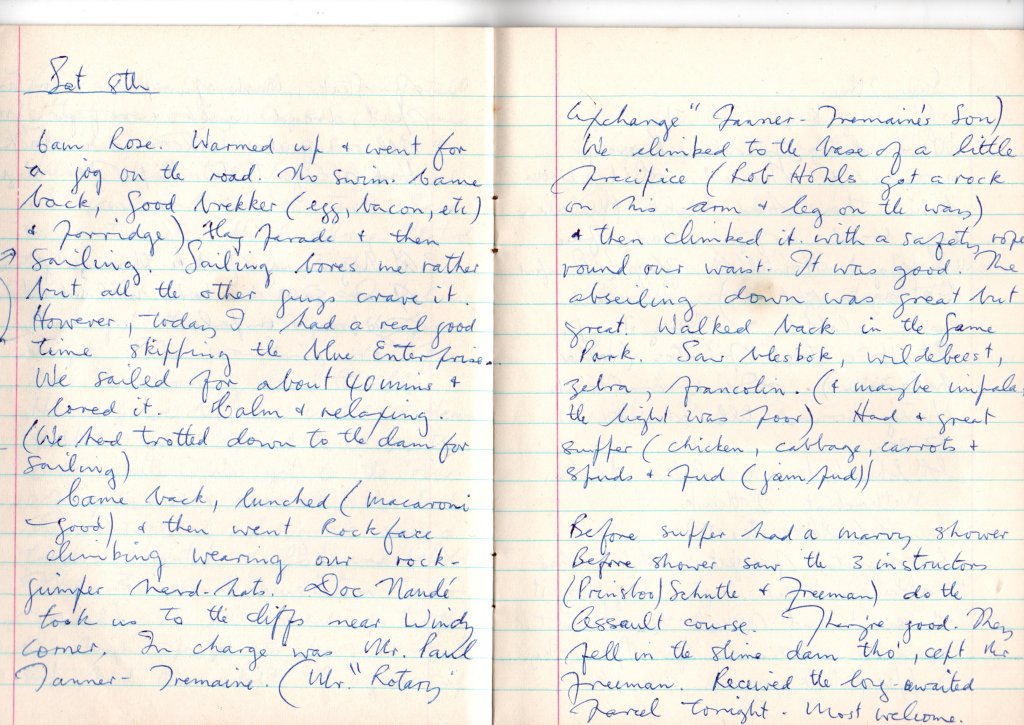 Sat 8th
6am Rose. Warmed up & went for
a jog on the road. No swim. Came
back, Good brekker (egg, bacon, etc)
& Porridge) Flag Parade & then
Sailing. Sailing bores me rather
but all the other guys crave it.
However, today I had a real good
time skipping the blue Enterprise.
We sailed for about 40 mins &
loved it. Calm & relaxing.
(We had trotted down to the dam for
sailing)
Came back, lunched (macaroni
- good) & then went Rockface
climbing wearing our rock-
jumper hard-hats. Doc Naudé
took us to the cliffs near Windy
corner. In charge was Mr. Paul
Tanner-Tremaine. (Mr. "Rotary
Exchange" Tanner-Tremaine's Son)
We climbed to the base of a little
Precipice (Rob Hohls got a rock
on his arm & leg on the way)
& then climbed it with a safety rope
round our waist. It was good. The
abseiling down was great but
great. Walked back in the Game
Park. Saw blesbok, wildebeest,
zebra, francolin. (& maybe impala,
the light was poor) Had a great
supper (chicken, cabbage, carrots &
spuds & pud (jam pud))
Before supper had a marvy shower
Before shower saw the 3 instructors
(Prinsloo, Schutte & Freeman) do the
Assault course. They're good. They
fell in the slime dam tho', cept Mr
Freeman. Received the long-awaited
Parcel tonight - Most welcome.